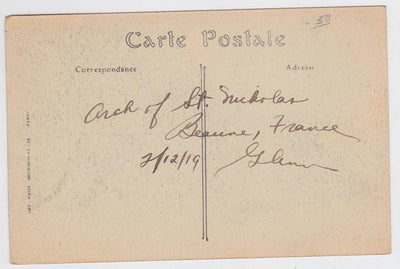 50
Carte Postale
Correspondance
Adresse
Arch of St. Nicholas
Beaune, France
2/12/19 Glenn